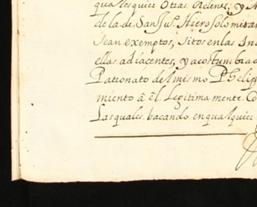 qualesquier Otras Relenes, y A
de la de San Ju.º Hierosolomitan
Sean exemptos, Sitos en las In
ellas adiacentes, y acostum
Patronato del mismo P.e Felipp
miento á él Legitimamente. Co
Las quales, bacando en qualquier